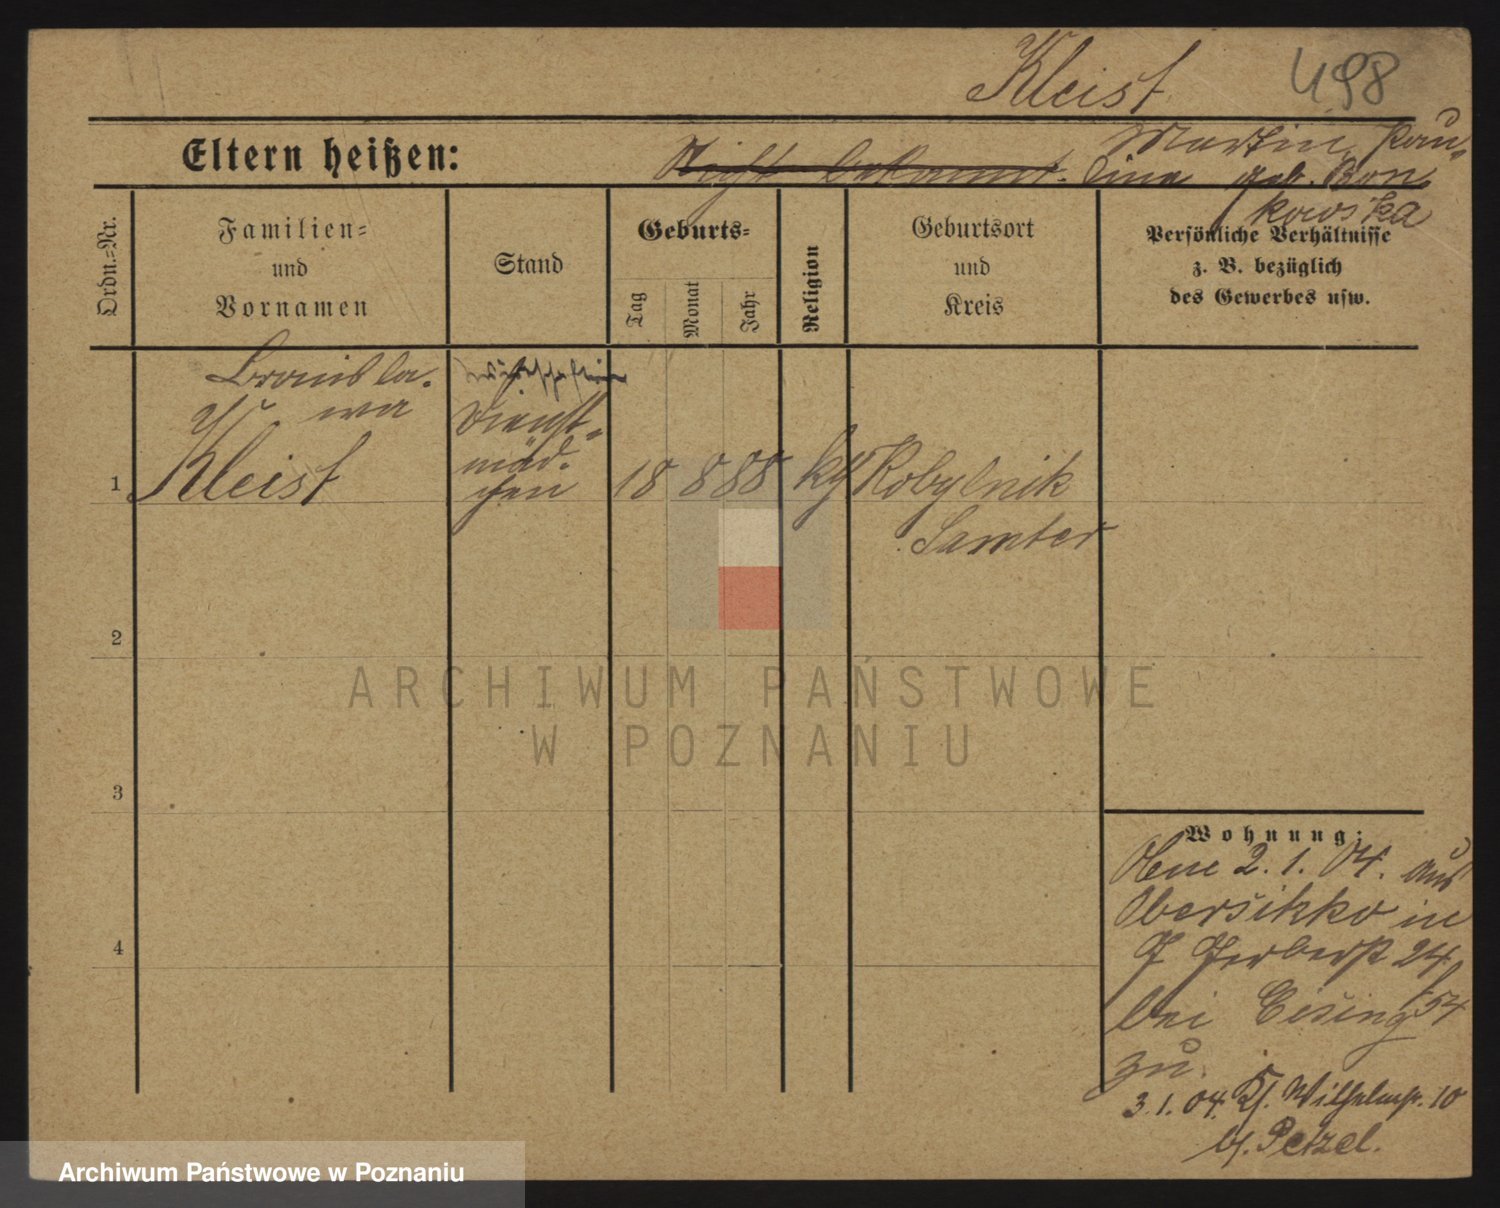 Kleist 498
Eltern heißen: Nicht bekannt. Martin, Pau-
lina geb. Bon-
kowska
Ordn.-Nr.
Familien-
und
Vornamen
Stand
Geburts-
Tag
Monat
Jahr
Religion
Geburtsort
und
Kreis
Persönliche Verhältnisse
z. B. bezüglich
des Gewerbes usw.
Bronisla-
wa
1 Kleist
Dienst-
mäd-
chen
18 8 88 kth Kobylnik
Samter
2
3
4
Wohnung:
2. 1. 04. aus
Obersitzko in
24
bei Eising 54
zu.
3. 1. 04. Wilhelmstr. 10
b. Petzel.
ARCHIWUM PAŃSTWOWE
W POZNANIU
Archiwum Państwowe w Poznaniu